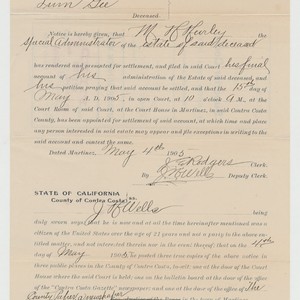 Deceased.
Notice is hereby given, that M R Hurley
the Special Administrator of the Estate of said deceased
has rendered and presented for settlement, and filed in said Court his final
account of his administration of the Estate of said deceased, and
his petition praying that said account be settled, and that the 15th day of
May A. D. 1905, in said Court, at 10 o'clock A.M., at the
Court Room of said Court, at the Court House in Martinez, in said Contra Costa
County, has been appointed for the settlement of said account, at which time and place
any person interested in said estate may appear and file exceptions in writing to the
said account and contest the same.
Dated Martinez, May 4th 1905
J. E. Rodgers Clerk.
By J H Wells Deputy Clerk.
STATE OF CALIFORNIA
County of Contra Costa ss.
J H Wells being
duly sworn, says: that he is and at the time hereinafter mentioned was a citizen of the
United States over the age of 21 years and not a party to the above entitled
matter, and not interested therein; that on the 4th
day of May 1905 he posted copies of the above notice in
three public places in the County of Contra Costa, to-wit: one at the door of the Court
House where the said Court is held, one on the bulletin board at the door of the office
of the "Contra Costa Gazette" newspaper, and one at the door of the office of The